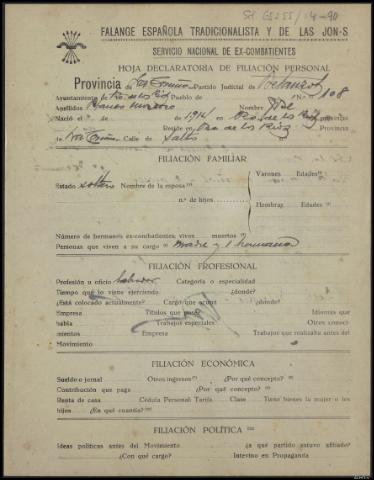 FALANGE ESPAÑOLA TRADICIONALISTA Y DE LAS JON-S
SERVICIO NACIONAL DE EX-COMBATIENTES
HOJA DECLARATORIA DE FILIACIÓN PERSONAL
Provincia de La Coruña Partido Judicial de Betanzos
Ayuntamiento de Pueblo de N.º 108
Apellidos Nombre
Nació el de de 1914 en Provincia
de La Coruña Reside en
Calle de
FILIACIÓN FAMILIAR
Varones Edades
Estado soltero Nombre de la esposa
n.º de hijos
Hembras Edades
Número de hermanos ex-combatientes, vivos muertos
Personas que viven a su cargo madre y 1 hermana
FILIACIÓN PROFESIONAL
Profesión u oficio labrador Categoría o especialidad
Tiempo que lo viene ejerciendo ¿dónde?
¿Está colocado actualmente? Cargo que ocupa ¿dónde?
Empresa Títulos que posee Idiomas que
habla Trabajos especiales Otros conoci-
mientos Empresa Trabajos que realizaba antes del
Movimiento
FILIACIÓN ECONÓMICA
Sueldo o jornal Otros ingresos ¿Por qué concepto?
Contribución que paga ¿Por qué concepto?
Renta de casa Cédula Personal Tarifa Clase Tiene bienes la mujer o los
hijos ¿En qué cuantía?
FILIACIÓN POLÍTICA
Ideas políticas antes del Movimiento ¿a qué partido estuvo afiliado?
¿Con qué cargo? Intervino en Propaganda